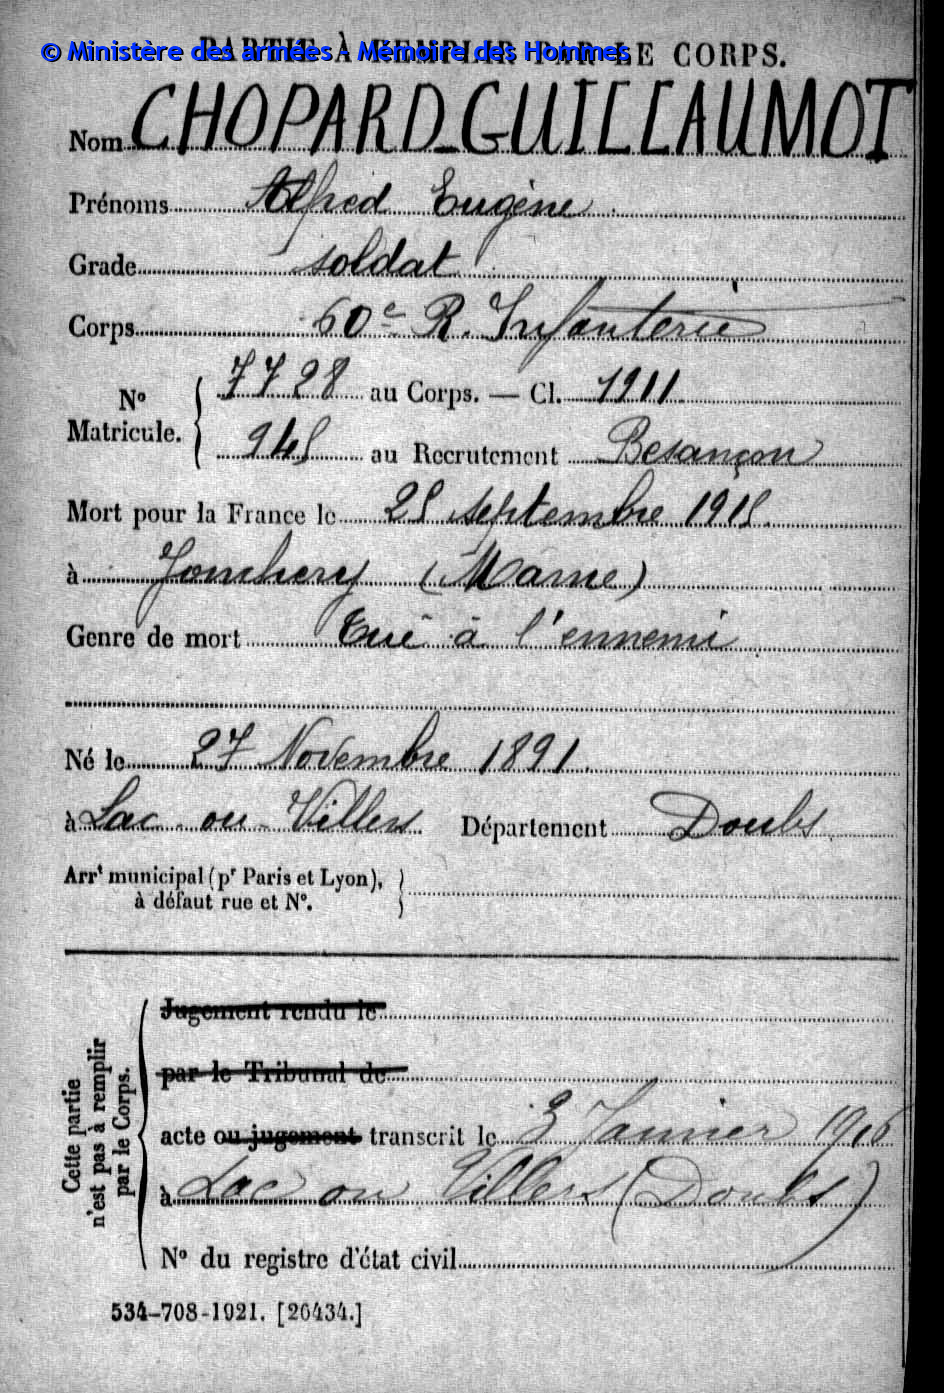 © Ministère des armées - Mémoire des Hommes
PARTIE À REMPLIR PAR LE CORPS.
Nom CHOPARD-GUILLAUMOT
Prénoms Alfred Eugène
Grade soldat
Corps 60e R. Infanterie
No Matricule. { 7728 au Corps. — Cl. 1911
945 au Recrutement Besançon
Mort pour la France le 25 septembre 1915
à Jonchery (Marne)
Genre de mort Tué à l'ennemi
Né le 27 Novembre 1891.
à Lac-ou-Villers Département Doubs
Arrt municipal (pr Paris et Lyon),
à défaut rue et No.
Cette partie
n'est pas à remplir
par le Corps.
Jugement rendu le
par le Tribunal de
acte ou jugement transcrit le 3 Janvier 1916
à Lac ou Villers (Doubs)
No du registre d'état civil
534-708-1921. [26434.]